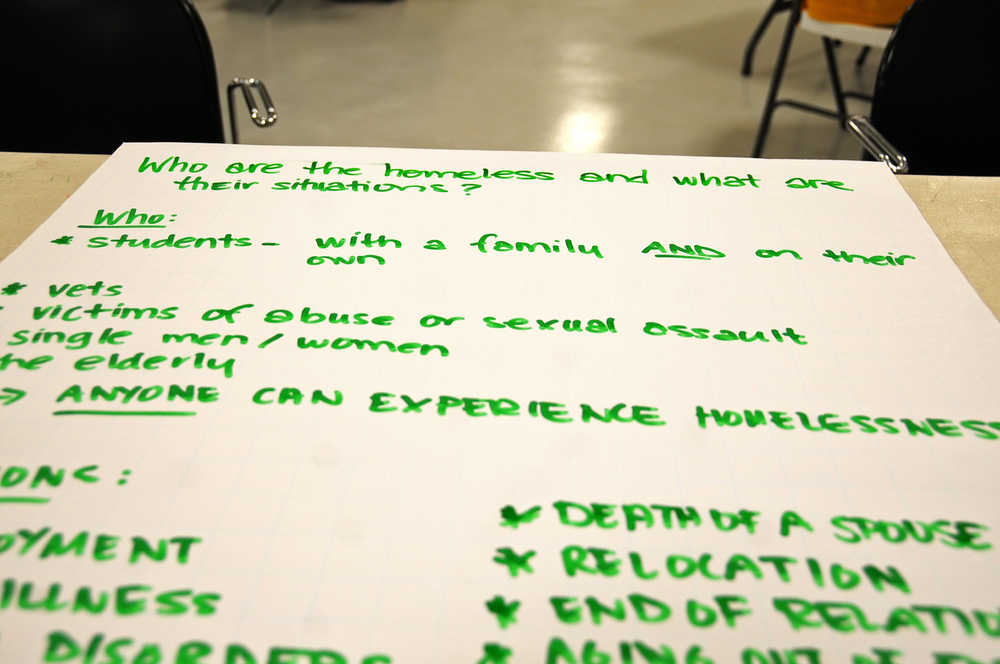 Who are the homeless and what are
their situations?
Who:
* students - with a family AND on their
own
* vets
victims of abuse or sexual assault
single men / women
the elderly
→ ANYONE CAN EXPERIENCE HOMELESSNESS
* DEATH OF A SPOUSE
ILLNESS
* RELOCATION
* END OF
DISORDERS
* AGING OUT OF